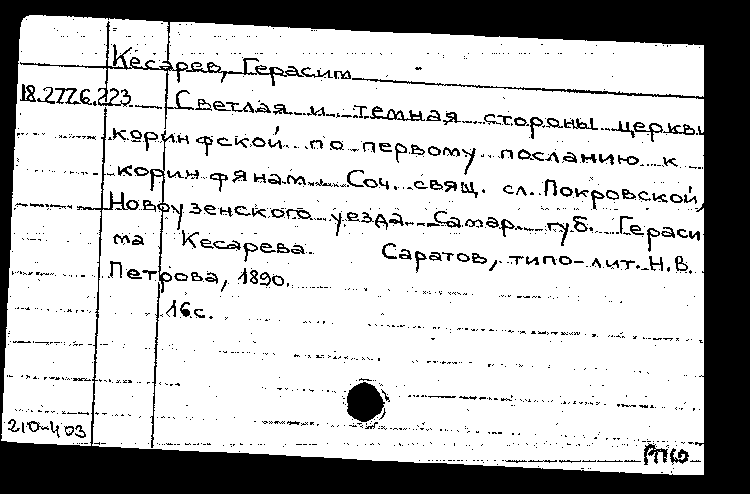 Кесарев, Герасим
18.277.6.223 Светлая и темная стороны церкви
коринфской по первому посланию к
коринфянам. Соч. свящ. сл. Покровской,
Новоузенского уезда Самар. губ. Гераси
ма Кесарева. Саратов, типо-лит. Н.В.
Петрова, 1890.
16с.
210-403